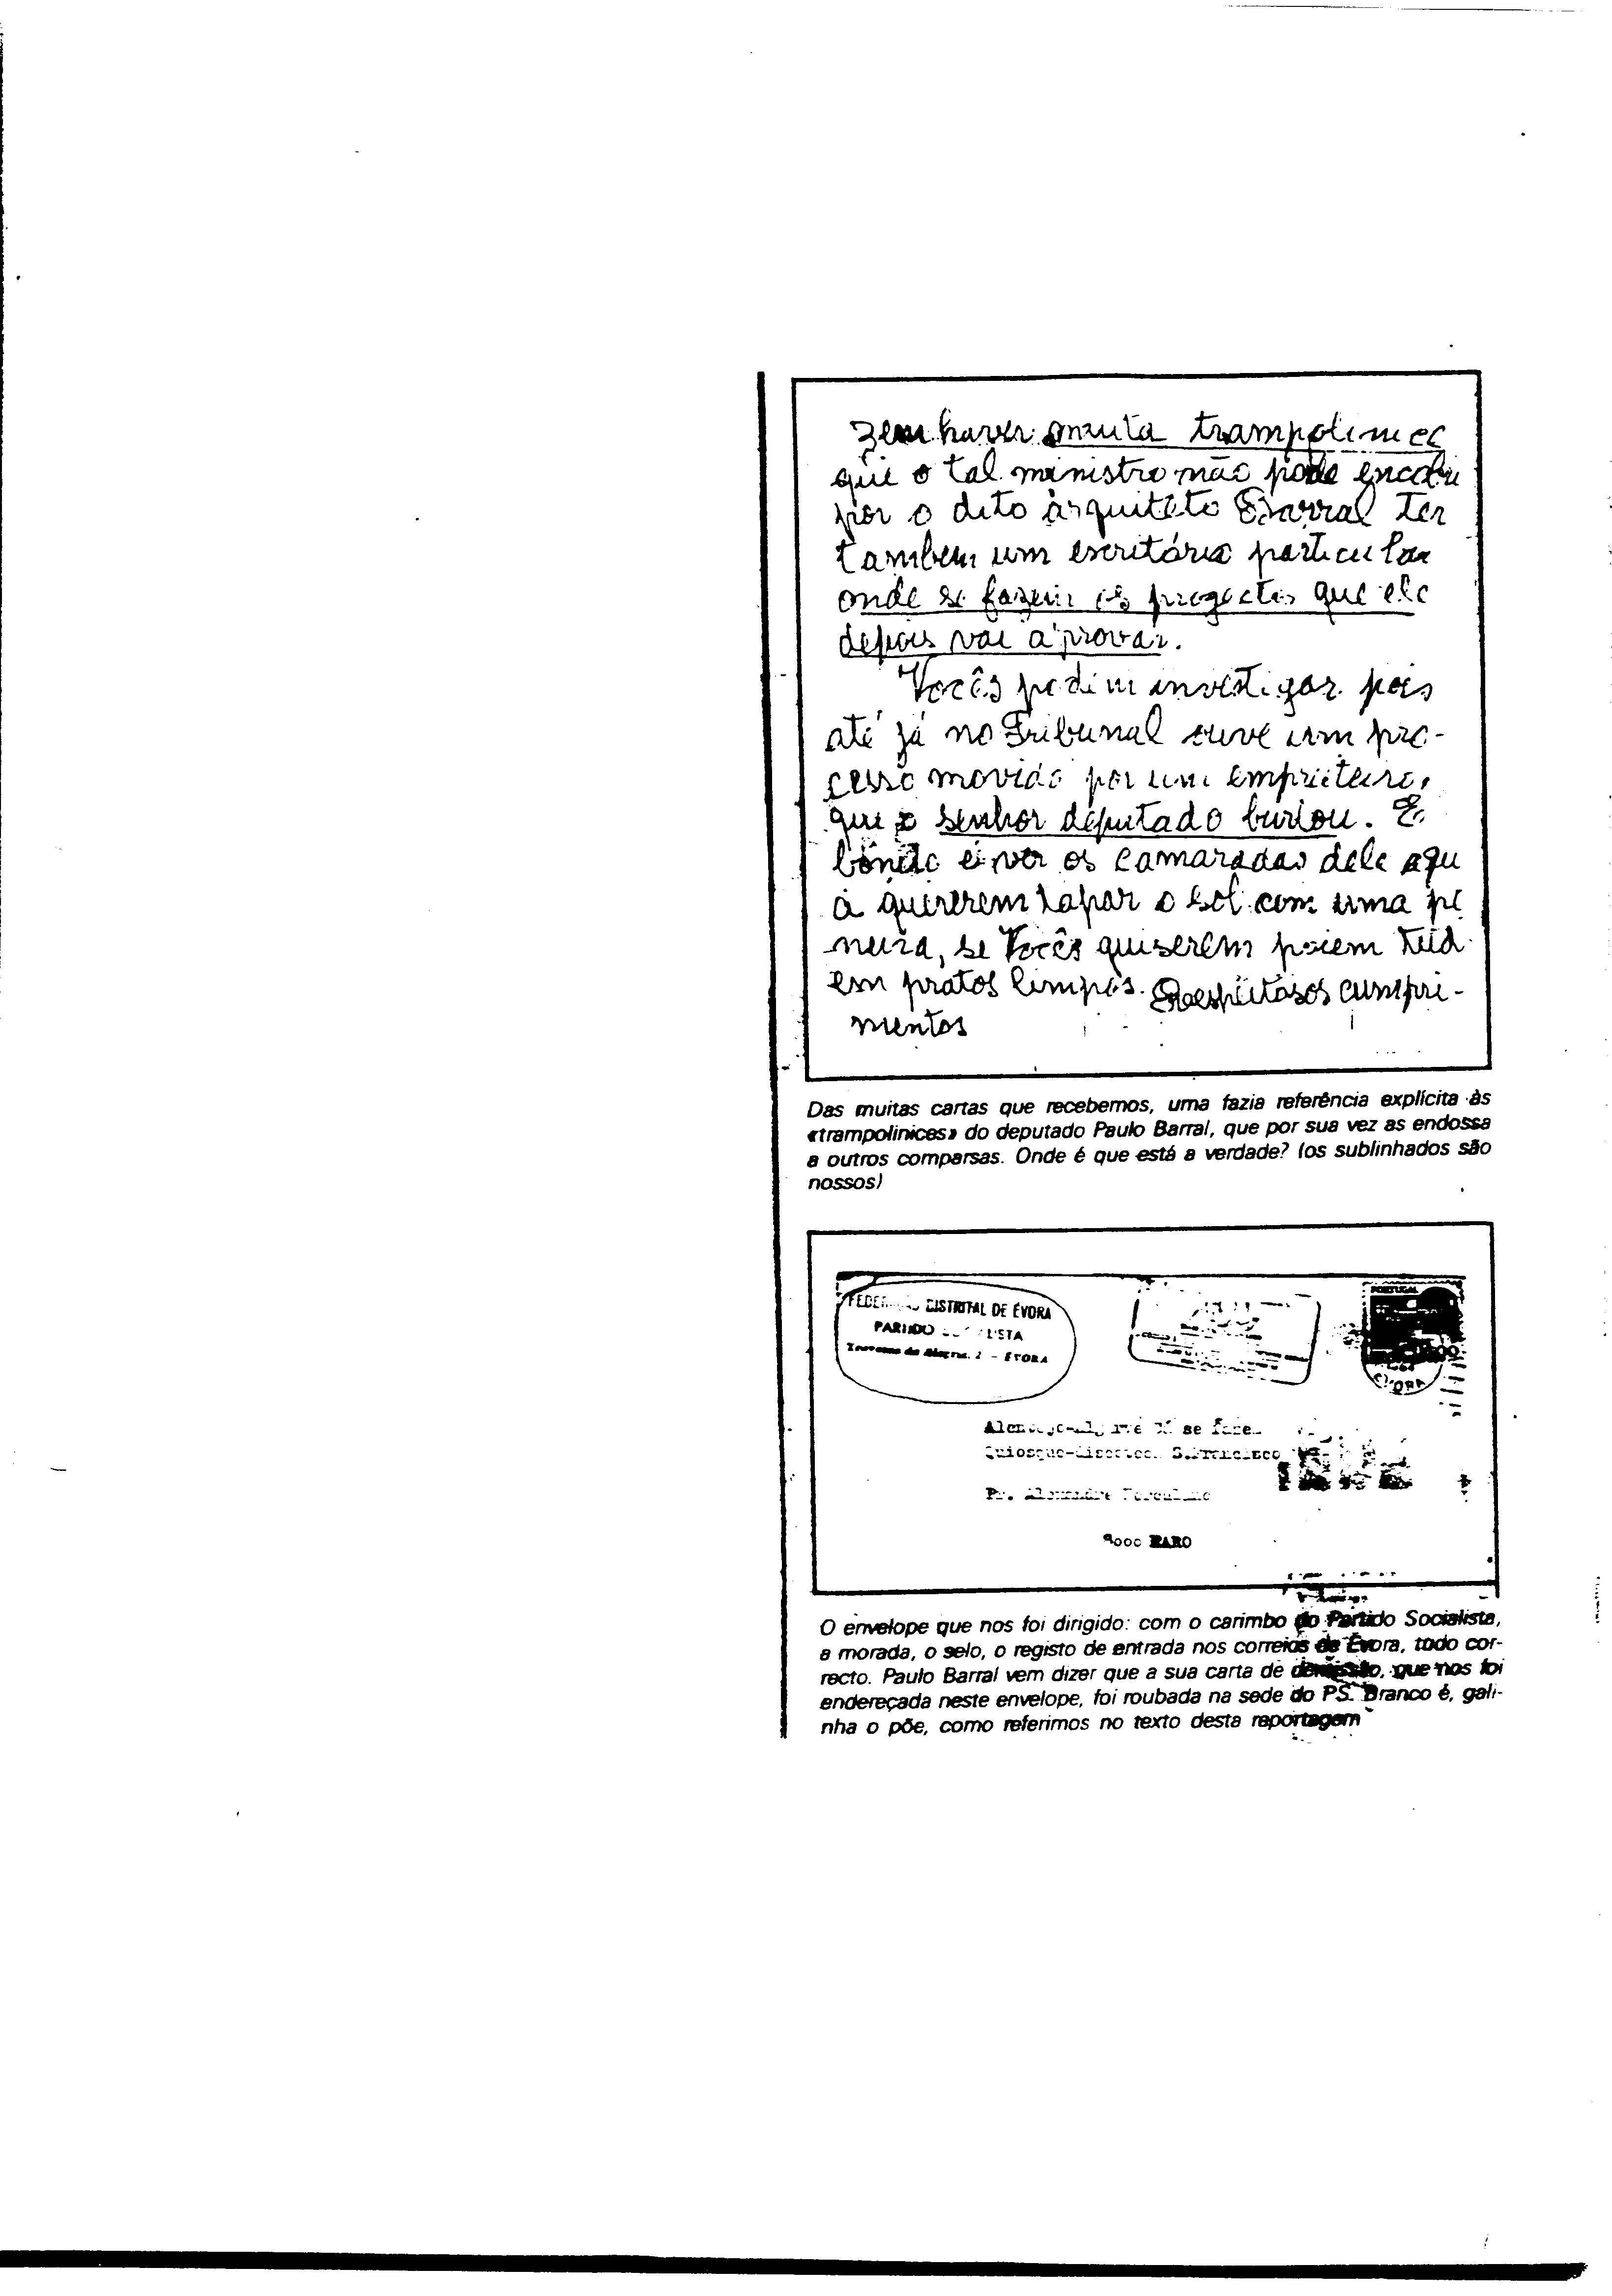 zem haver muita trampolinec
que o tal ministro não pode encobri
por o dito arquiteto Barral ter
tambem um escritório particular
onde se fazem os progectos que ele
depois vai aprovar.
Vocês podem investigar pois
até já no Tribunal ouve um pro-
cesso movido por um empreiteiro,
que o senhor deputado burlou. E
bonito é ver os camaradas dele aqu
a quererem tapar o sol com uma pe
neira, se Vocês quiserem poiem tud
em pratos limpos. Respeitosos cumpri-
mentos
Das muitas cartas que recebemos, uma fazia referência explícita às
«trampolinices» do deputado Paulo Barral, que por sua vez as endossa
a outros comparsas. Onde é que está a verdade? (os sublinhados são
nossos)
DISTRITAL DE ÉVORA
PARTIDO
- ÉVORA
PORTUGAL
se
S.Francisco
Pr. Alexandre Herculano
8000 FARO
O envelope que nos foi dirigido: com o carimbo do Partido Socialista,
a morada, o selo, o registo de entrada nos correios de Évora, todo cor-
recto. Paulo Barral vem dizer que a sua carta de demissão, que nos foi
endereçada neste envelope, foi roubada na sede do PS. Branco é, gali-
nha o põe, como referimos no texto desta reportagem